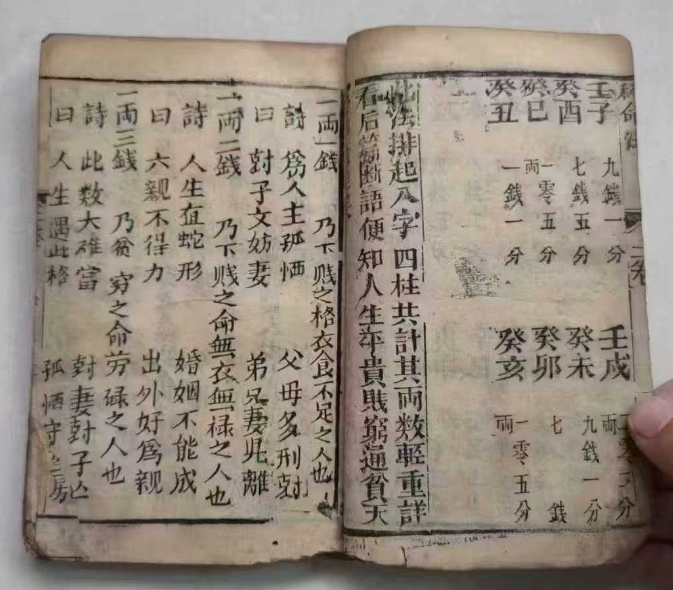 二卷
壬子 九錢一分 壬戌 兩零一分
癸酉 七錢五分 癸未 九錢一分
癸巳 一兩零五分 癸卯 七錢
癸丑 一錢一分 癸亥 一兩零五分
此法排起八字四柱共計其兩数輕重詳
看后篇断語便知人生平貴賎窮通貧夭
一兩一錢 乃下贱之格衣食不足之人也
詩 為人主孤恓 父母多刑尅
曰 尅子又妨妻 弟兄妻児離
一兩二錢 乃下贱之命無衣無禄之人也
詩 人生值蛇形 婚姻不能成
曰 六親不得力 出外好為親
一兩三錢 乃貧穷之命劳碌之人也
詩 此数大难富 尅妻尅子亡
曰 人生遇此格 孤恓守空房